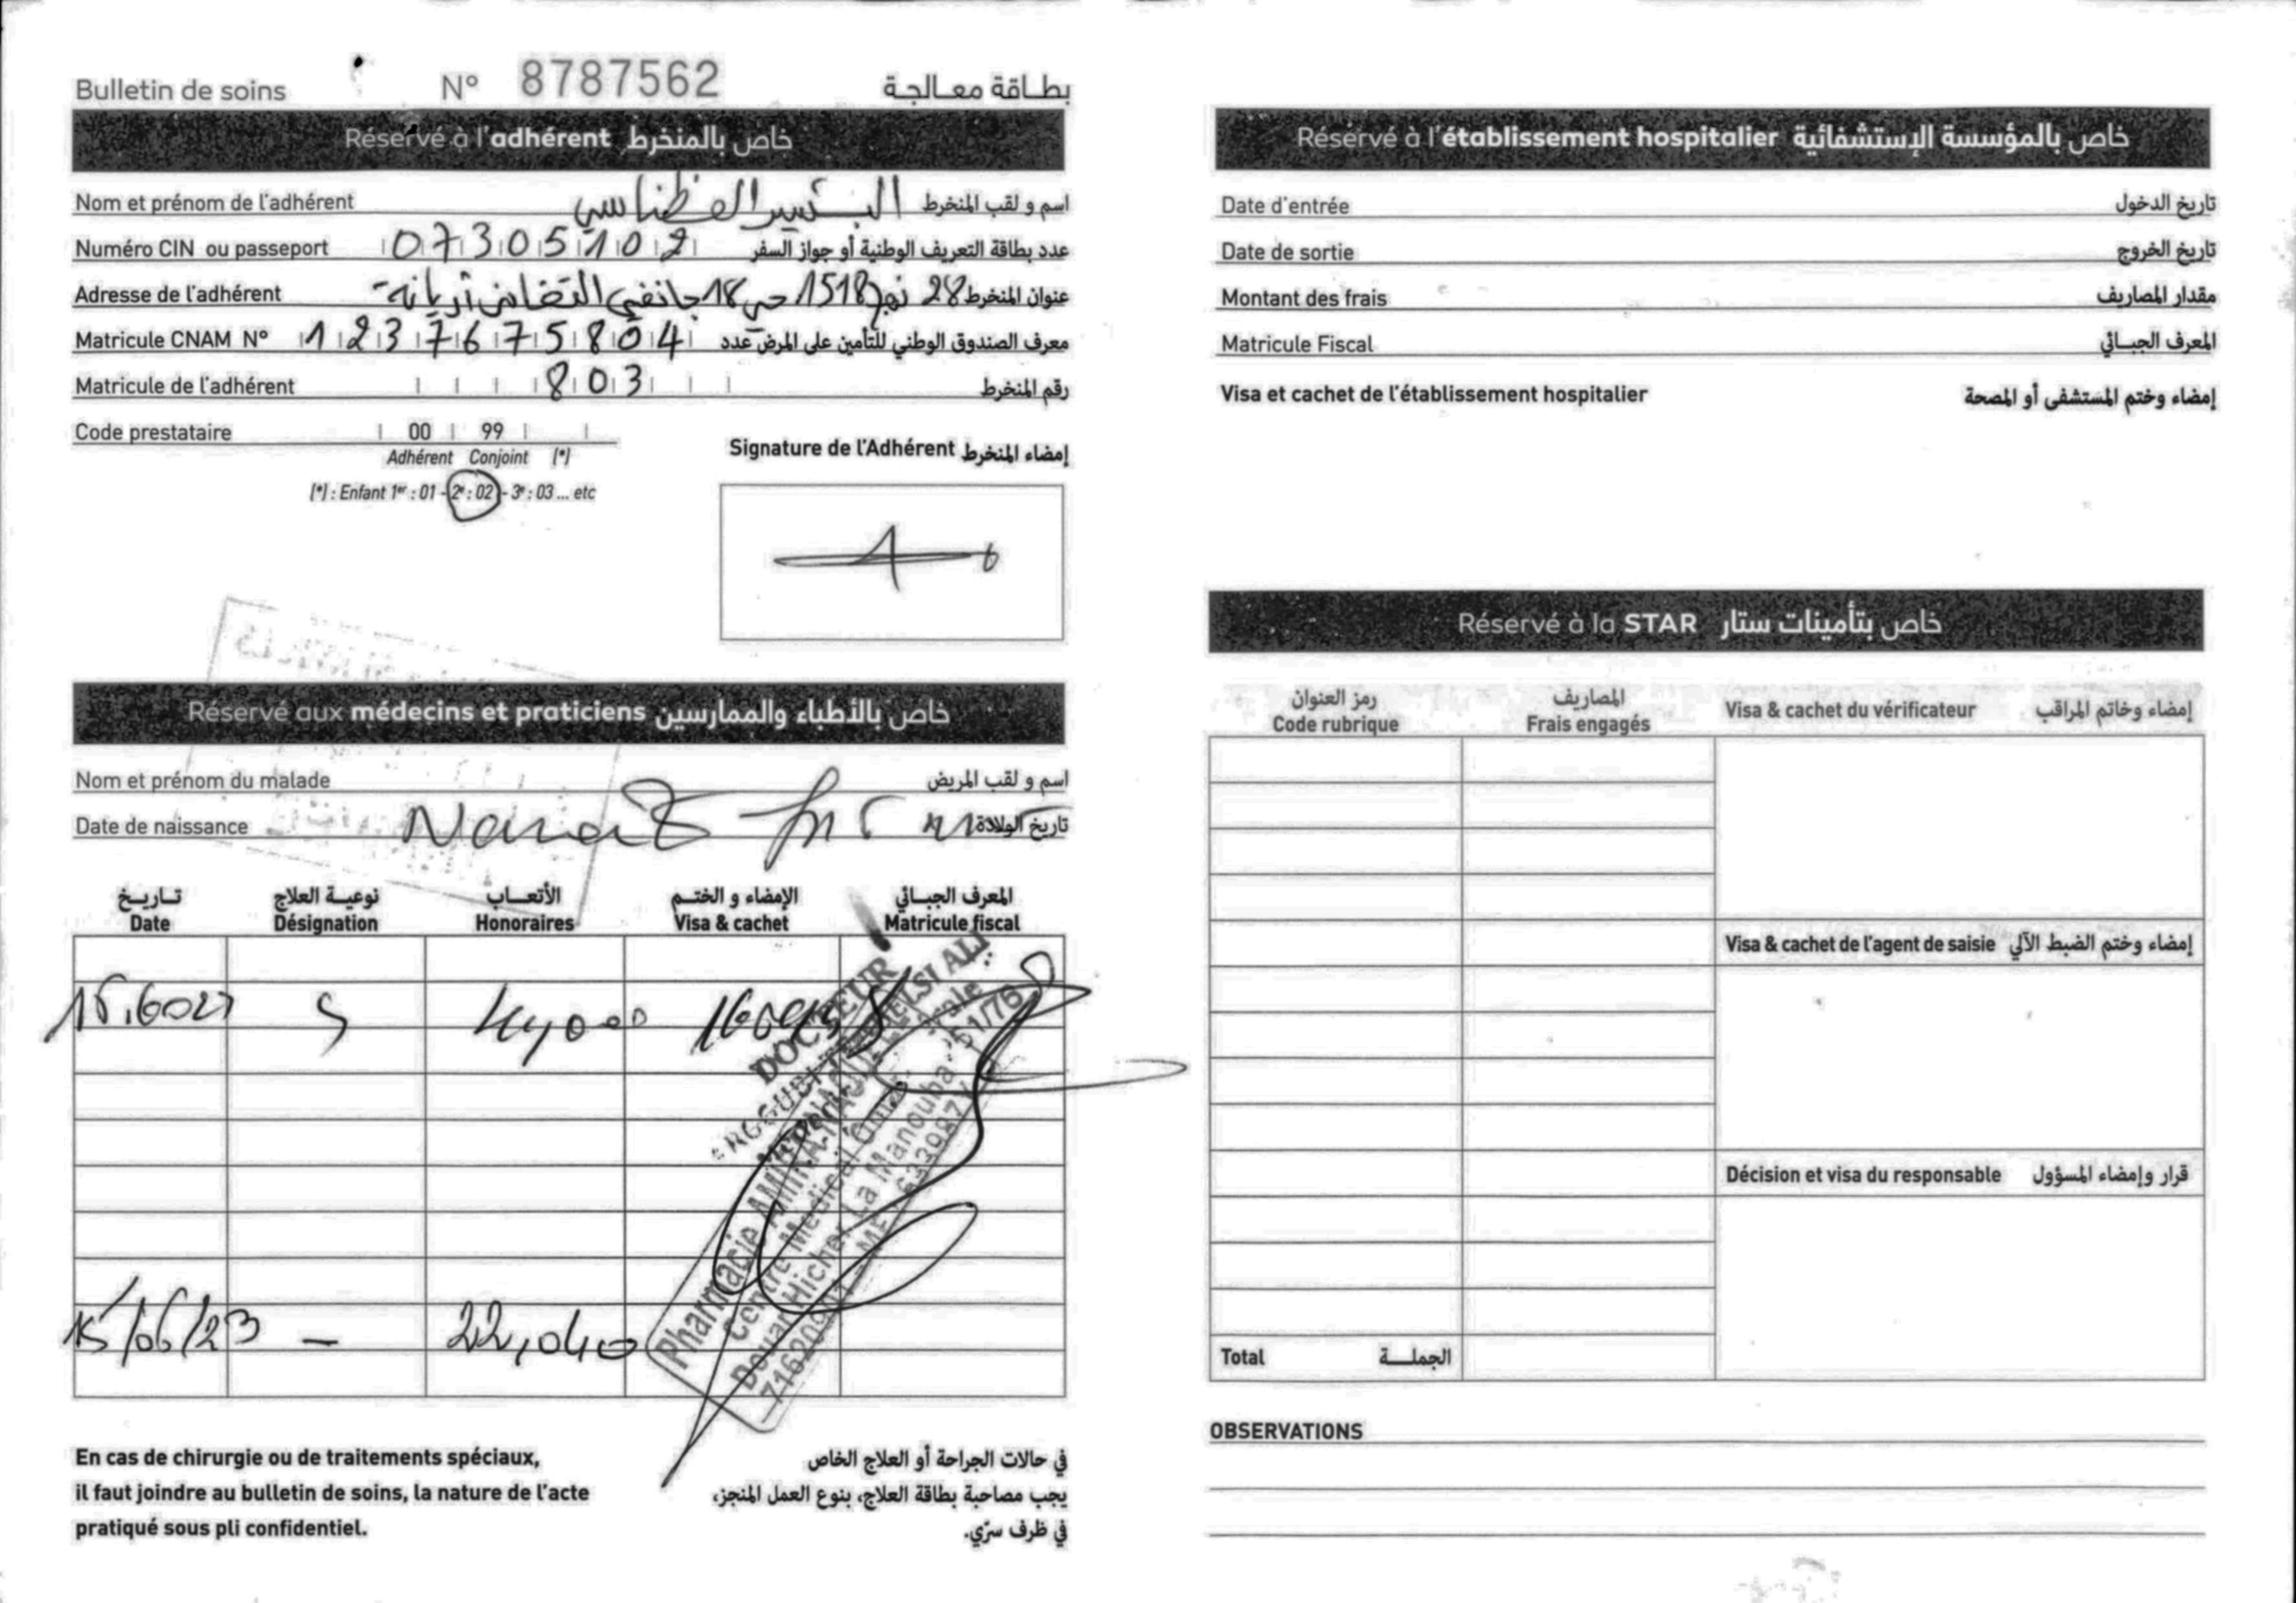 Bulletin de soins N° 8787562 بطاقة معالجة
Réservé à l'adhérent خاص بالمنخرط
Nom et prénom de l'adhérent البشير الغطاسي اسم و لقب المنخرط
Numéro CIN ou passeport 07305102 عدد بطاقة التعريف الوطنية أو جواز السفر
Adresse de l'adhérent 28 نهج 1518 حي 18 جانفي التضامن أريانة عنوان المنخرط
Matricule CNAM N° 1237675804 معرف الصندوق الوطني للتأمين على المرض عدد
Matricule de l'adhérent 803 رقم المنخرط
Code prestataire 00 99
Adhérent Conjoint (*)
(*) : Enfant 1er : 01 - 2e : 02 - 3e : 03 ... etc
Signature de l'Adhérent إمضاء المنخرط
Réservé aux médecins et praticiens خاص بالأطباء والممارسين
Nom et prénom du malade اسم و لقب المريض
Date de naissance تاريخ الولادة
تاريخ نوعية العلاج الأتعاب الإمضاء و الختم المعرف الجبائي
Date Désignation Honoraires Visa & cachet Matricule fiscal
DOCTEUR
15/06/23 - 22,040
Pharmacie AMIRA
Centre Medical Omar
Douar Hicher La Manouba
En cas de chirurgie ou de traitements spéciaux,
il faut joindre au bulletin de soins, la nature de l'acte
pratiqué sous pli confidentiel.
في حالات الجراحة أو العلاج الخاص
يجب مصاحبة بطاقة العلاج، بنوع العمل المنجز،
في ظرف سرّي.
Réservé à l'établissement hospitalier خاص بالمؤسسة الإستشفائية
Date d'entrée تاريخ الدخول
Date de sortie تاريخ الخروج
Montant des frais مقدار المصاريف
Matricule Fiscal المعرف الجبائي
Visa et cachet de l'établissement hospitalier إمضاء وختم المستشفى أو المصحة
Réservé à la STAR خاص بتأمينات ستار
رمز العنوان المصاريف
Code rubrique Frais engagés Visa & cachet du vérificateur إمضاء وخاتم المراقب
Visa & cachet de l'agent de saisie إمضاء وختم الضبط الآلي
Décision et visa du responsable قرار وإمضاء المسؤول
Total الجملة
OBSERVATIONS